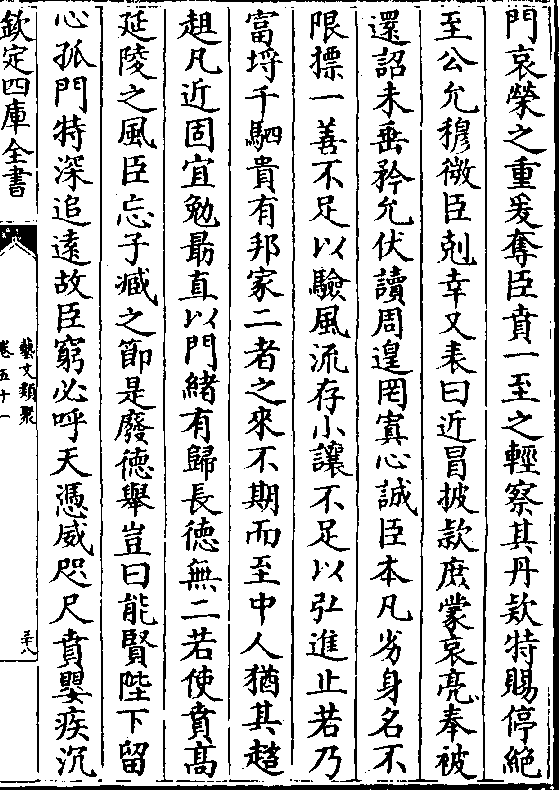 門哀榮之重爰奪臣賁一至之輕察其丹欵特賜停絶
至公允穆微臣剋幸又表曰近冒披款庶蒙哀亮奉被
還詔未垂矜允伏讀周遑罔寘心誠臣本凡劣身名不
限摽一善不足以驗風流存小讓不足以弘進止若乃
富埓千駟貴有邦家二者之來不期而至中人猶其趦
趄凡近固宜勉最直以門緒有歸長德無二若使賁高
延陵之風臣忘子臧之節是廢德舉豈曰能賢陛下留
心孤門特深追遠故臣窮必呼天憑威咫尺賁嬰疾沉
欽定四庫全書
藝文類聚
卷五十一
三十八